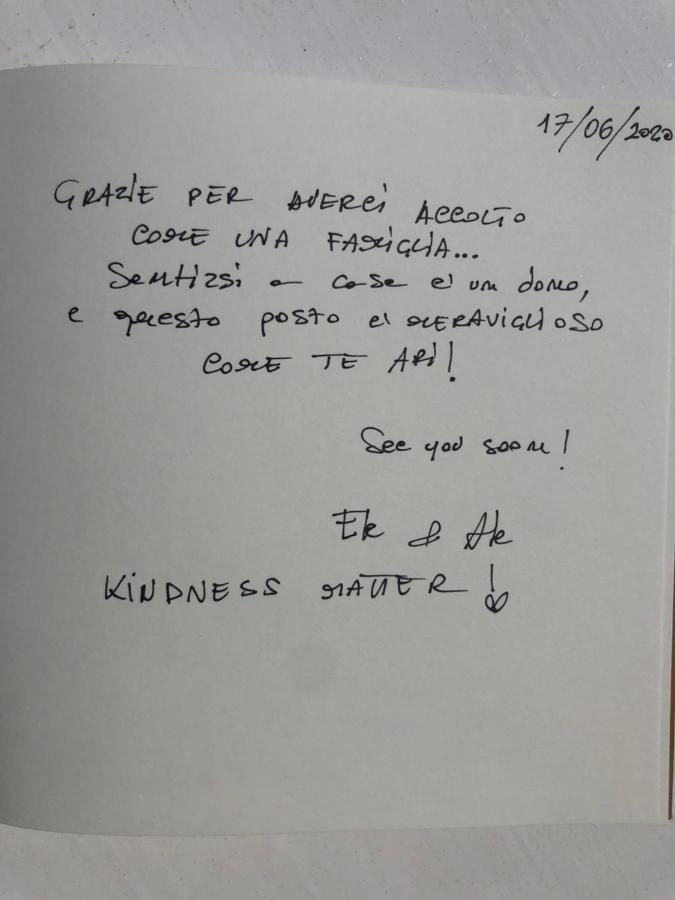 17/06/2020
GRAZIE PER AVERCI ACCOLTO
COME UNA FAMIGLIA...
Sentirsi a casa e' un dono,
e questo posto e' MERAVIGLIOSO
COME TE ARI!
See you soon!
Ele & Ale
KINDNESS MATTER!